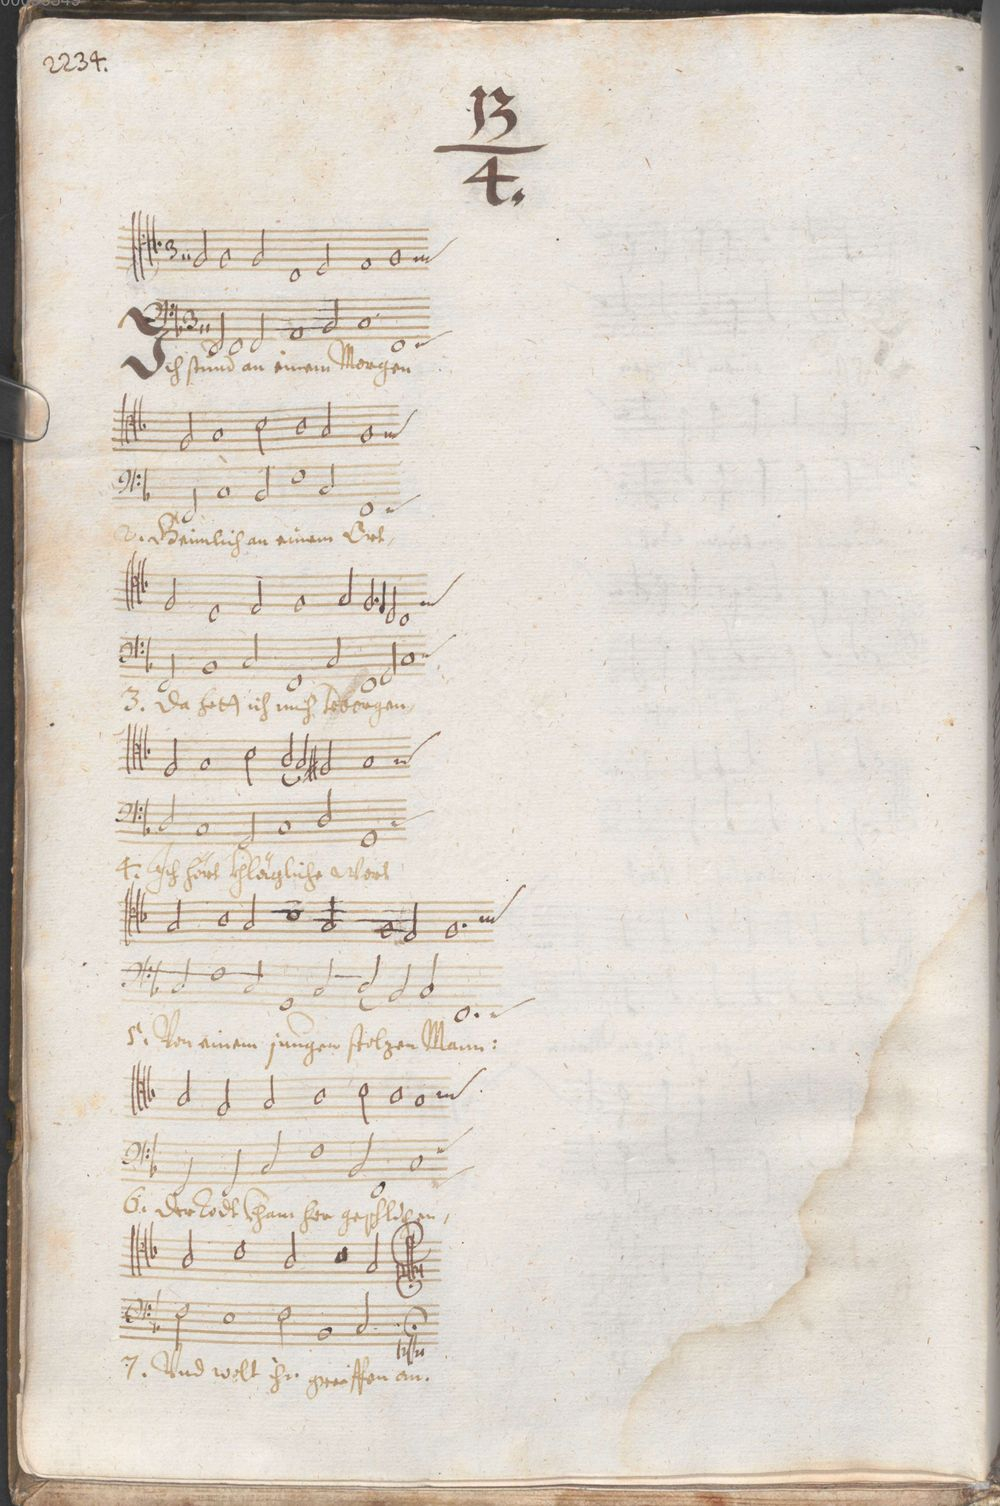 2234.
13
4.
Ich stund an einem Morgen
2. Heimlich an einem Ort,
3. Da hett ich mich verborgen,
4. Ich hört khlägliche Wort
5. Von einem jungen stolzen Mann:
6. Der Todt kham her geschlichen,
7. Vnd wolt ihn greiffen an.